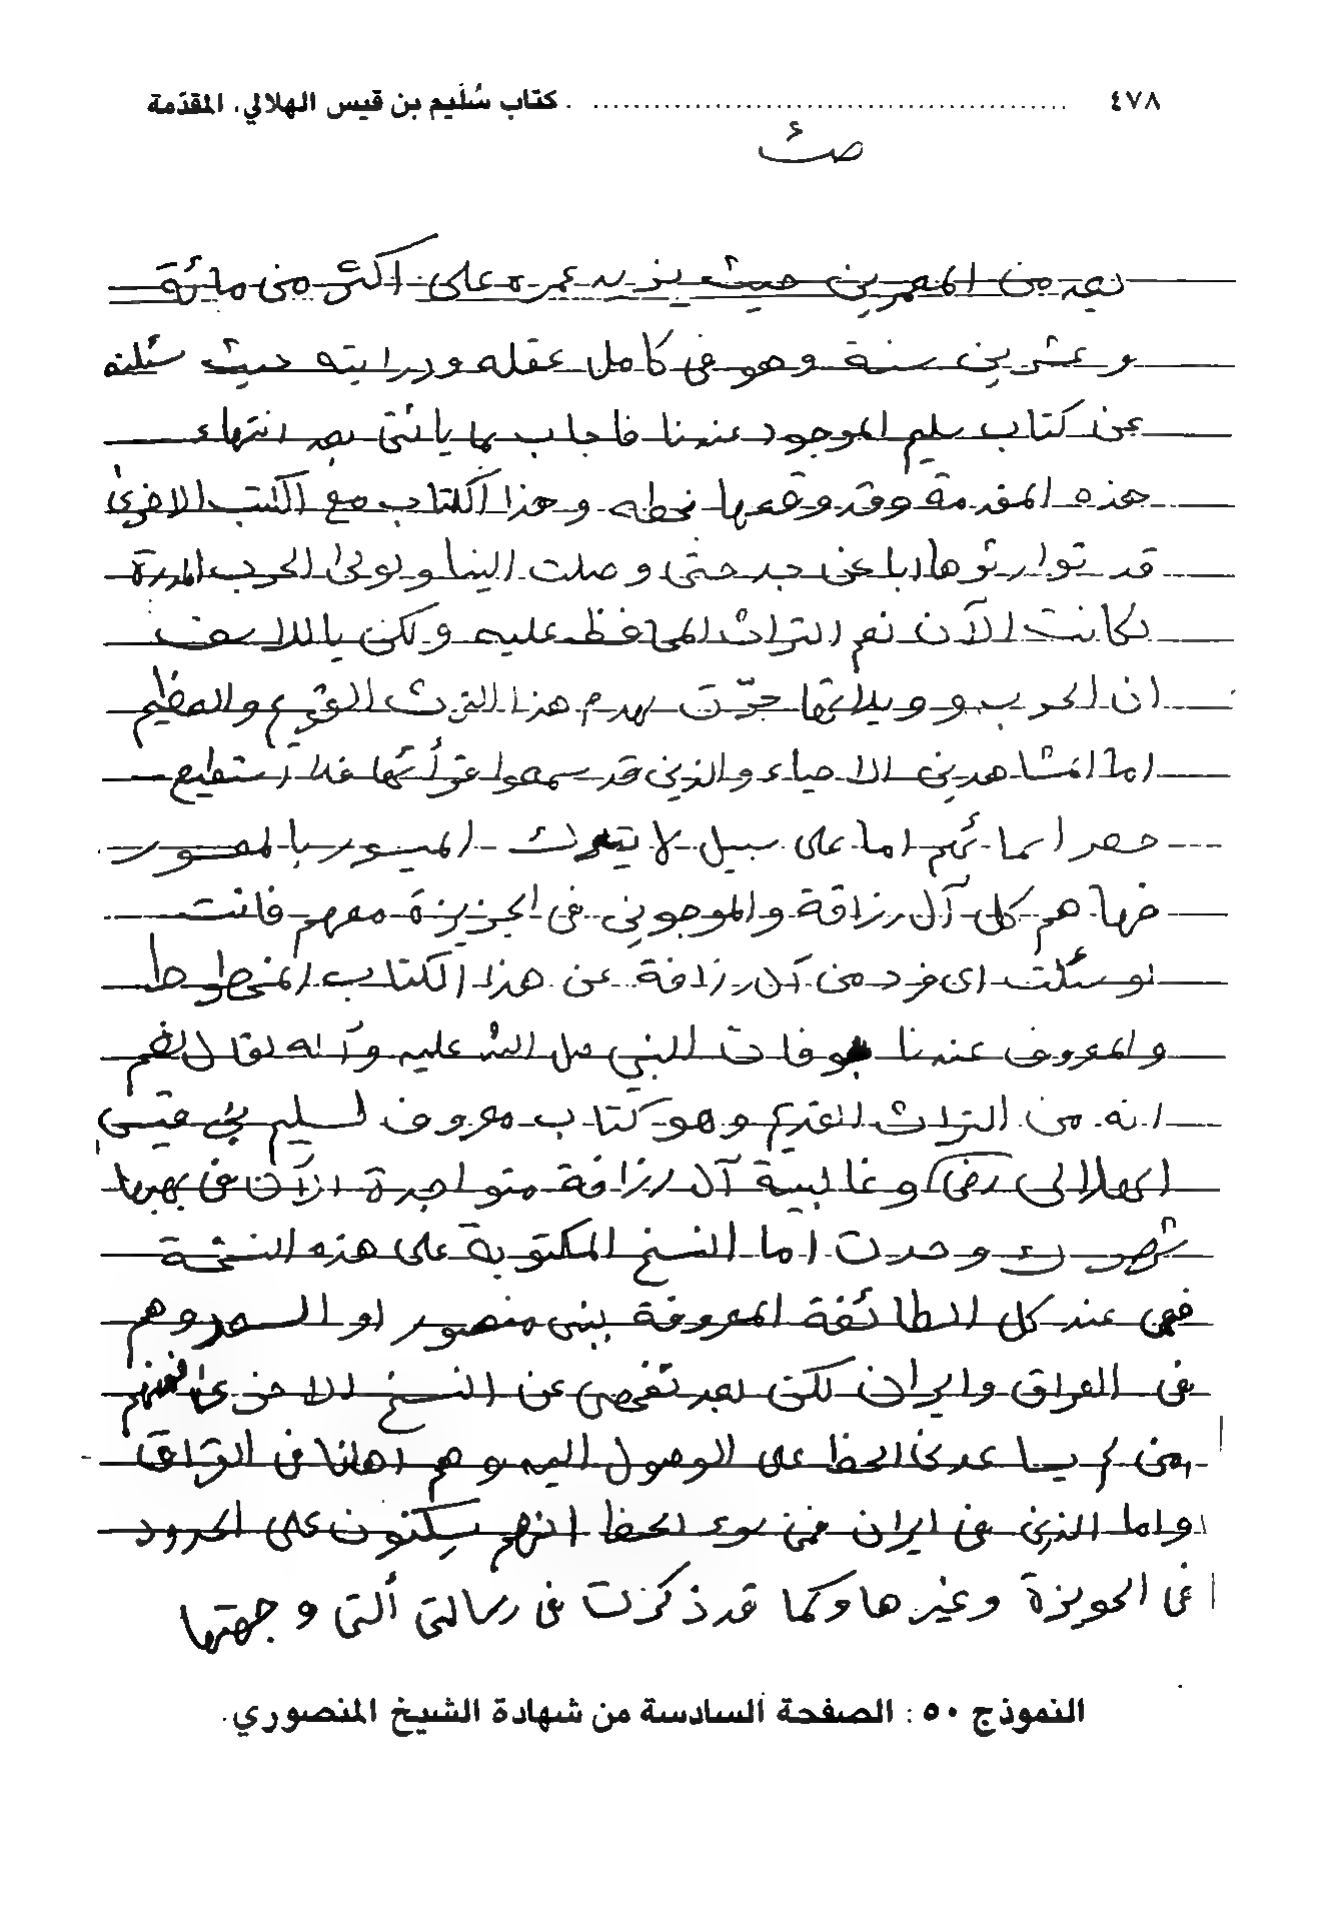 ٤٧٨ ........ كتاب سُلَيم بن قيس الهلالي، المقدّمة
نعد من المعمرين حيث يزيد عمره على اكثر من مائة
وعشرين سنة وهو في كامل عقله ودرايته حيث سئلته
عن كتاب سليم الموجود عندنا فاجاب بما يأتي بعد انتهاء
هذه المقدمة وقد وقعها بخطه وهذا الكتاب مع الكتب الاخرى
قد توارثوها ابا عن جد حتى وصلت الينا ولولى الحرب المدمرة
لكانت الآن نعم التراث المحافظ عليه ولكن ياللاسف
ان الحرب وويلاتها جرّت بهدم هذا التراث القويم والعظيم
اما المشاهدين الاحياء والذين قد سمعوا قرأتها فلا أستطيع
حصر اسمائهم اما على سبيل لا يترك الميسور بالمعسور
فها هم كل آل رزاقة والموجوين في الجزيزة معهم فانت
لو سئلت اى فرد من آل رزافة عن هذا الكتاب المخطوط
والمعروف عندنا بوفات النبي صل الله عليه وآله لقال نعم
انه من التراث القديم وهو كتاب معروف لسليم بن قيس
الهلالى (رض) وغالبية آل رزافة متواجدة الآن في بهبها
وحدت اما النسخ المكتوبة على هذه النسخة
فهي عند كل الطائفة المعروفة ببنى منصور او السـ وهم
في العراق وايران لكن بعد تفحصى عن النسخ الاخرى
من لم يساعدنى الحظ على الوصول اليه وهم اهلنا في العراق
واما الذين في ايران فمن سوء الحظ انهم يسكنون على الحدود
في الحويزة وغيرها وكما قد ذكرت في رسالتي ألتي وجهتها
النموذج ٥٠ : الصفحة السادسة من شهادة الشيخ المنصوري.